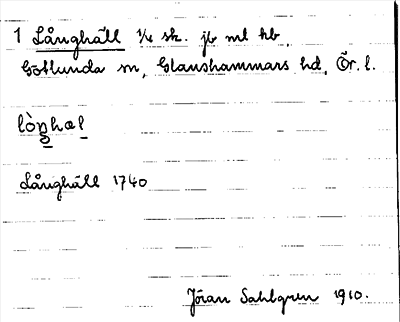 1 Långhäll 1/4 sk. jb ml kb,
Götlunda sn, Glanshammars hd, Ör. l.
Långhäll 1740
Jöran Sahlgren 1910.